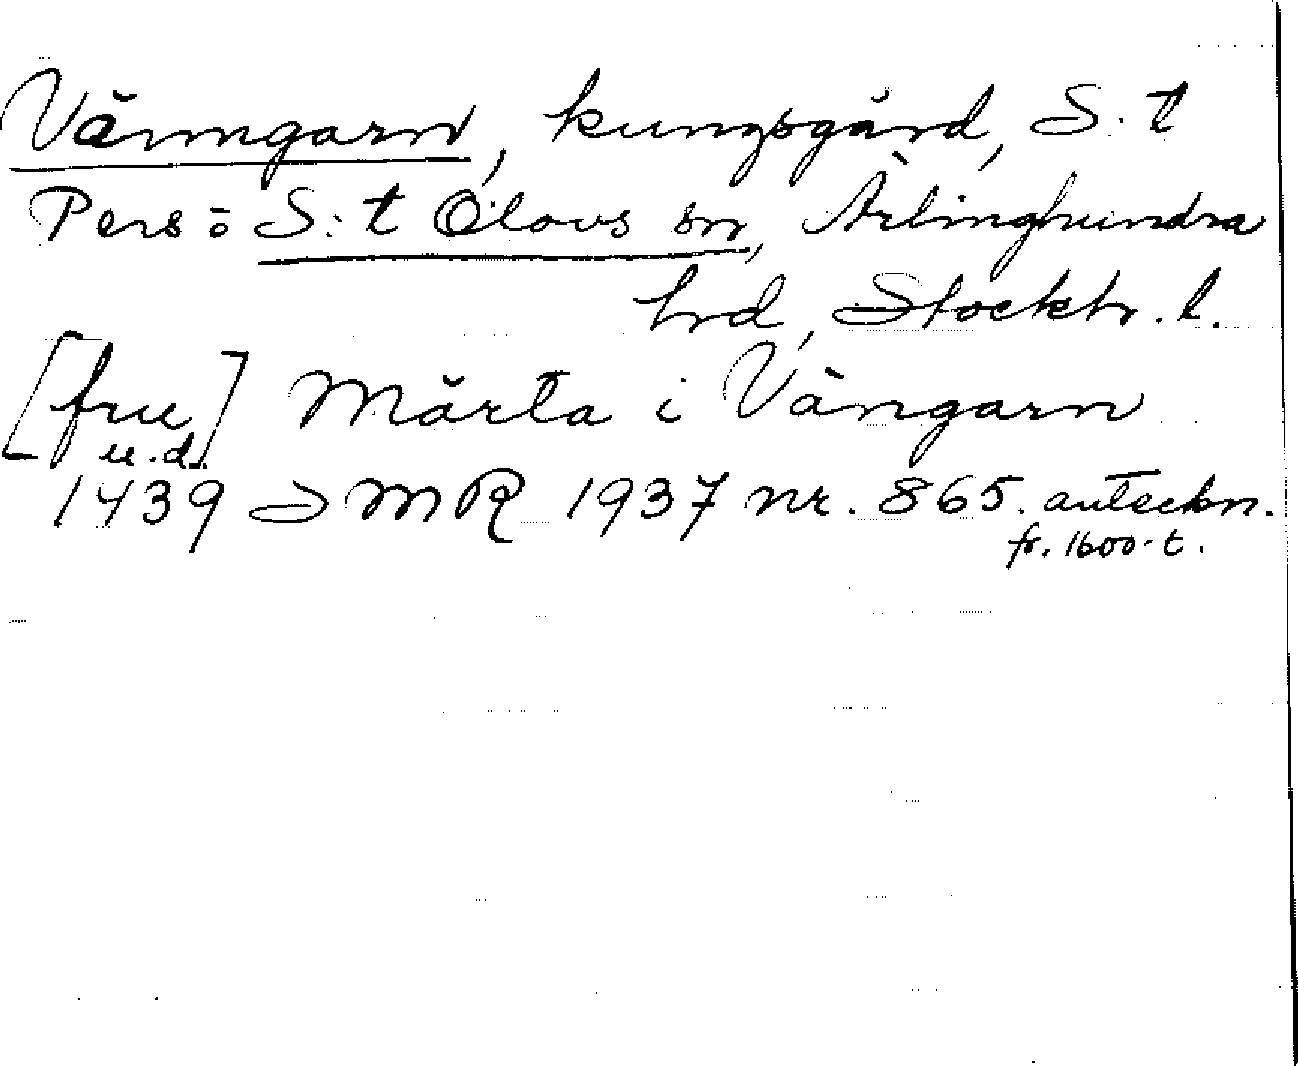 Vänngarn, kungsgård, S:t
Pers o S:t Olovs sn, Ärlinghundra
hrd, Stockh. l.
[fru] Märta i Vängarn
u.d.
1439 SMR 1937 nr. 865. anteckn.
fr. 1600-t.